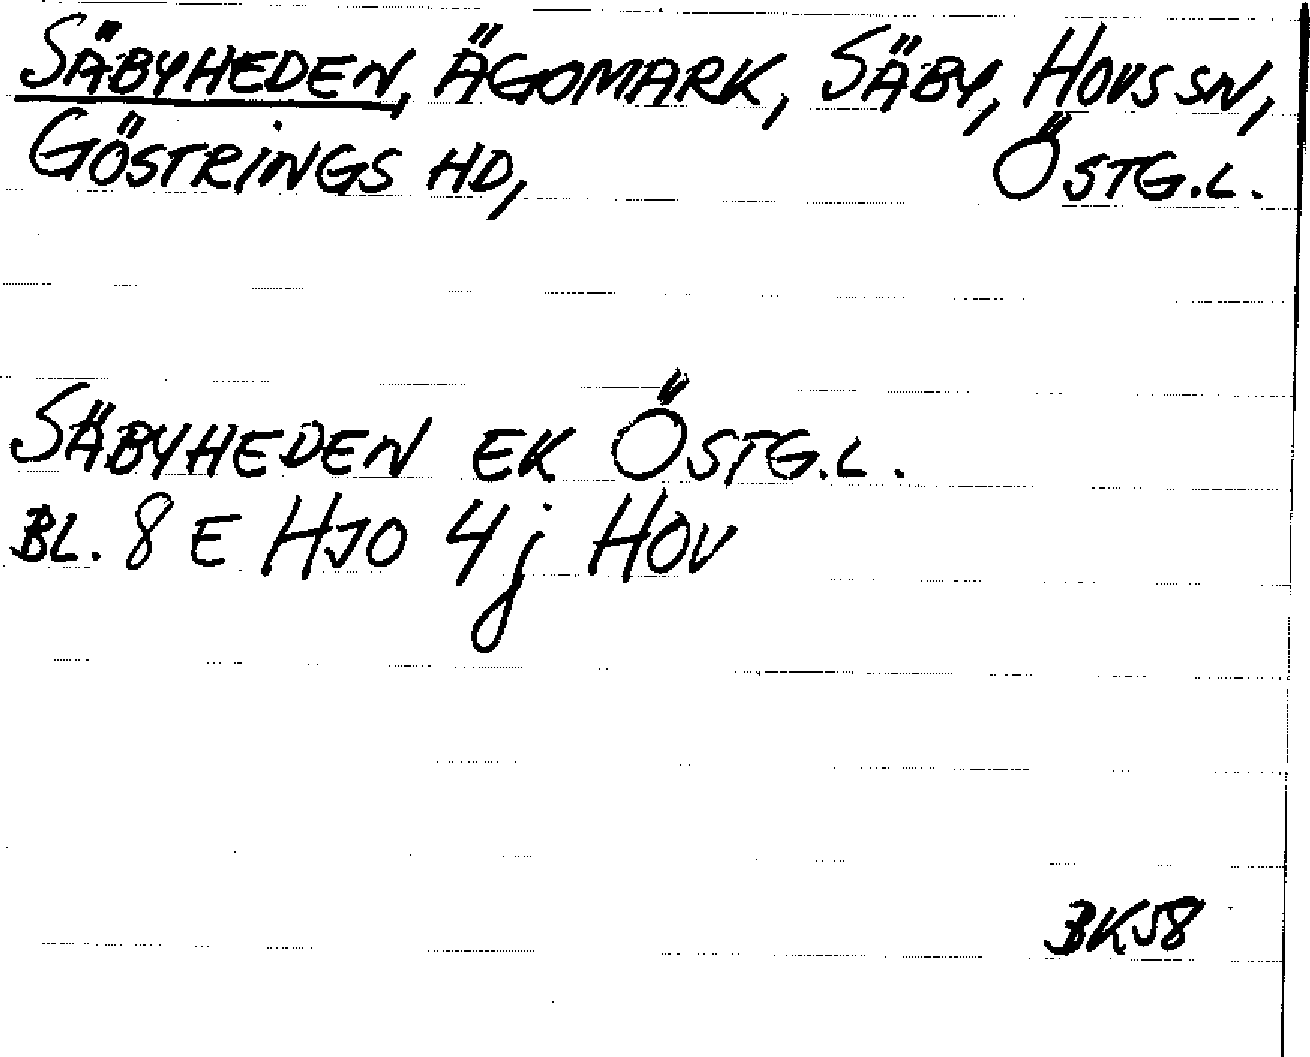 SÄBYHEDEN, ÄGOMARK, SÄBY, HOVS SN,
GÖSTRINGS HD, ÖSTG.L.
SÄBYHEDEN EK ÖSTG.L.
BL. 8 E HJO 4j HOV
BK58